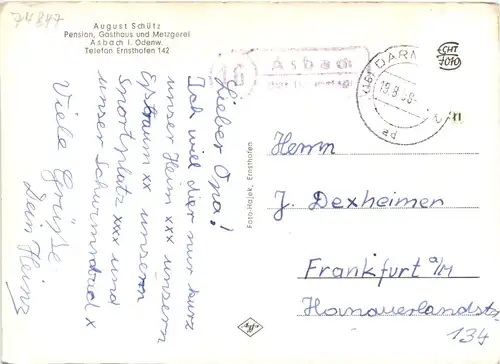 74847
August Schütz
Pension, Gasthaus und Metzgerei
Asbach i. Odenw.
Telefon Ernsthofen 142
16
Asbach
DARM
19.8.68
ad
ECHT
Foto-Hajek, Ernsthofen
Agfa
Lieber Opa!
Ich will dier nur kurz
unser Heim xxx unsern
Eßraum xx unsern
Sportplatz xxx und
unser Schwimmbad x
Viele Grüße
Dein Heinz
Herrn
J. Dexheimer
Frankfurt a/M
Hanauerlandstr.
134